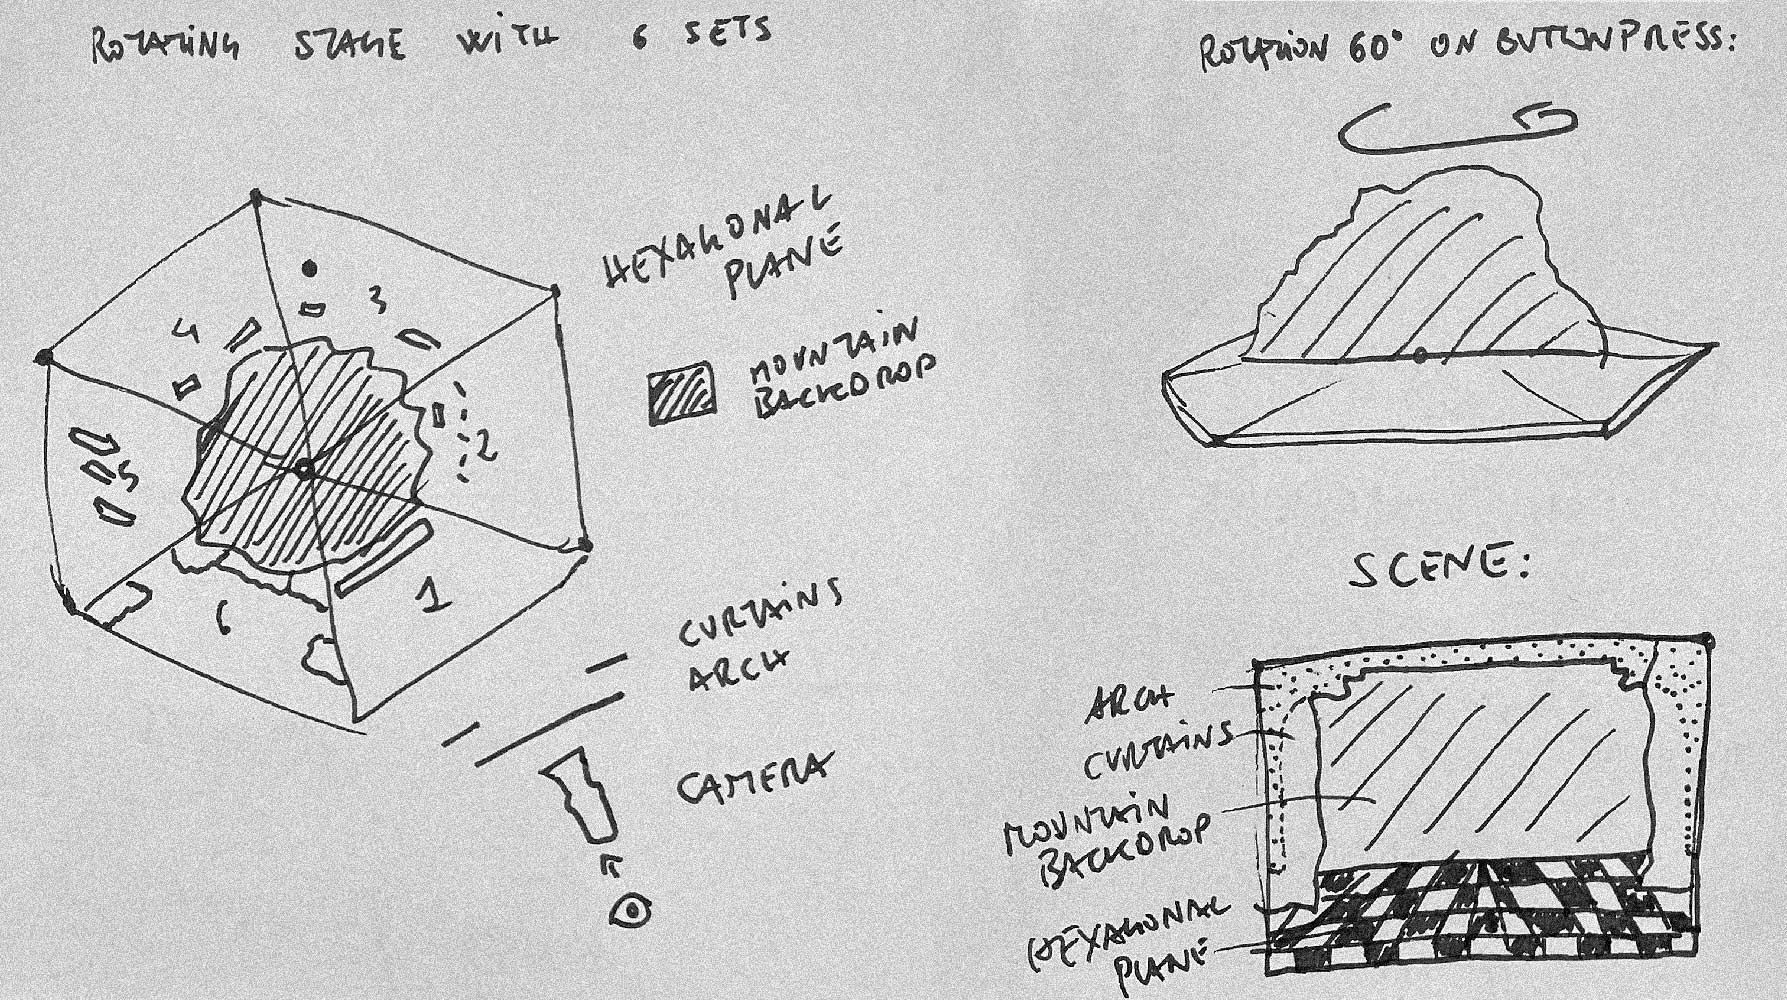 ROTATING STAGE WITH 6 SETS
HEXAGONAL
PLANE
MOUNTAIN
BACKDROP
3
4
2
5
1
6
CURTAINS
ARCH
CAMERA
ROTATION 60° ON BUTTONPRESS:
SCENE:
ARCH
CURTAINS
MOUNTAIN
BACKDROP
HEXAGONAL
PLANE